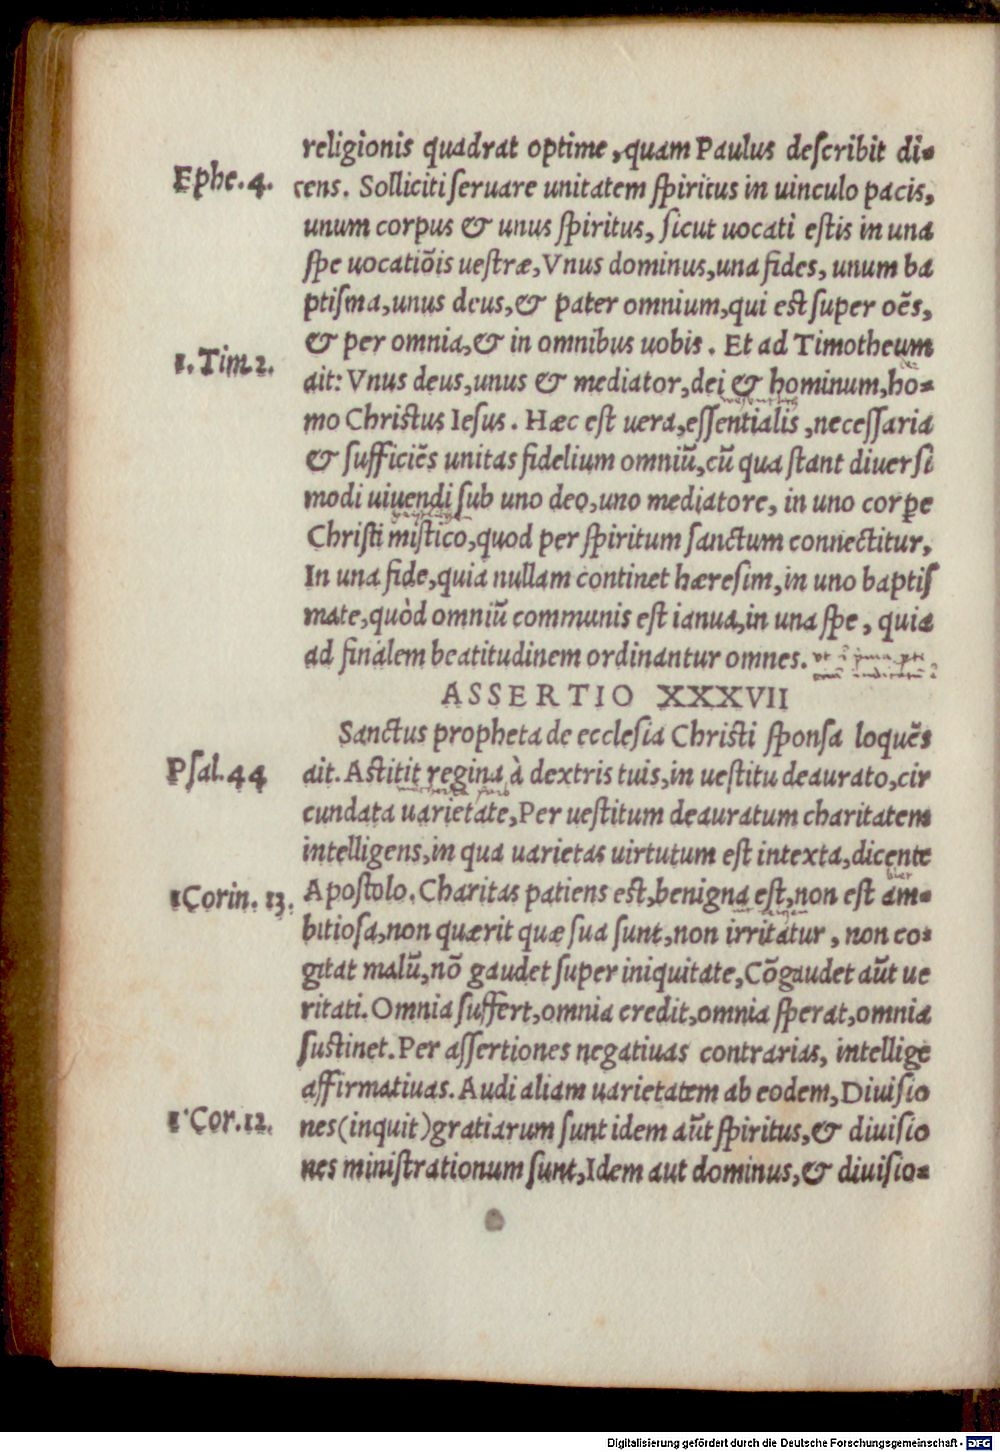 religionis quadrat optime, quam Paulus deſcribit di-
Ephe. 4. cens. Solliciti ſeruare unitatem ſpiritus in uinculo pacis,
unum corpus & unus ſpiritus, ſicut uocati eſtis in una
ſpe uocatiõis ueſtræ, Vnus dominus, una fides, unum ba
ptiſma, unus deus, & pater omnium, qui eſt ſuper oẽs,
& per omnia, & in omnibus uobis. Et ad Timotheum
1. Tim 2. ait: Vnus deus, unus & mediator, dei & hominum, ho-
mo Chriſtus Ieſus. Hæc eſt uera, eſſentialis, neceſſaria
& ſufficiẽs unitas fidelium omniũ, cũ qua ſtant diuerſi
modi uiuendi ſub uno deo, uno mediatore, in uno corꝑe
Chriſti miſtico, quod per ſpiritum ſanctum connectitur,
In una fide, quia nullam continet hæreſim, in uno baptiſ
mate, quòd omniũ communis eſt ianua, in una ſpe, quia
ad finalem beatitudinem ordinantur omnes.
ASSERTIO XXXVII
Sanctus propheta de eccleſia Chriſti ſponſa loquẽs
Pſal. 44 ait. Aſtitit regina à dextris tuis, in ueſtitu deaurato, cir
cundata uarietate, Per ueſtitum deauratum charitatem
intelligens, in qua uarietas uirtutum eſt intexta, dicente
1 Corin. 13. Apoſtolo. Charitas patiens eſt, benigna eſt, non eſt am-
bitioſa, non quærit quæ ſua ſunt, non irritatur, non co-
gitat malũ, nõ gaudet ſuper iniquitate, Cõgaudet aũt ue
ritati. Omnia ſuffert, omnia credit, omnia ſperat, omnia
ſuſtinet. Per aſſertiones negatiuas contrarias, intellige
affirmatiuas. Audi aliam uarietatem ab eodem, Diuiſio
1 Cor. 12. nes (inquit) gratiarum ſunt idem aũt ſpiritus, & diuiſio
nes miniſtrationum ſunt, Idem aut dominus, & diuiſio-
Digitalisierung gefördert durch die Deutsche Forschungsgemeinschaft - DFG